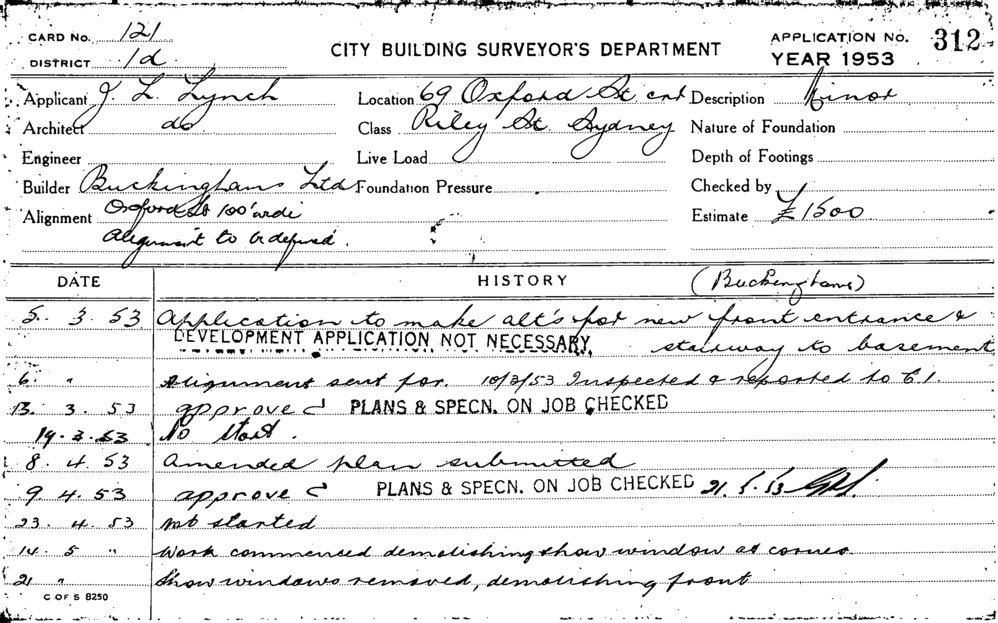 CARD No. 121
DISTRICT 1d
CITY BUILDING SURVEYOR'S DEPARTMENT
APPLICATION No. 312
YEAR 1953
Applicant J. L. Lynch
Architect do
Engineer
Builder Buckinghams Ltd
Alignment Oxford St 100' wide
Alignment to be defined.
Location 69 Oxford St cnr
Class Riley St. Sydney
Live Load
Foundation Pressure
Description Minor
Nature of Foundation
Depth of Footings
Checked by
Estimate £1500
DATE HISTORY (Buckinghams)
5. 3. 53 Application to make alt's for new front entrance &
DEVELOPMENT APPLICATION NOT NECESSARY. stairway to basement
6. " Alignment sent for. 10/3/53 Inspected & reported to C.I.
13. 3. 53 approved PLANS & SPECN. ON JOB CHECKED
19.3.53 No start.
8. 4. 53 Amended plan submitted
9. 4. 53 approved PLANS & SPECN. ON JOB CHECKED 21.5.53
23. 4. 53 not started
14. 5 " Work commenced demolishing show window at corner
21 " Show windows removed, demolishing front
C OF S 8250